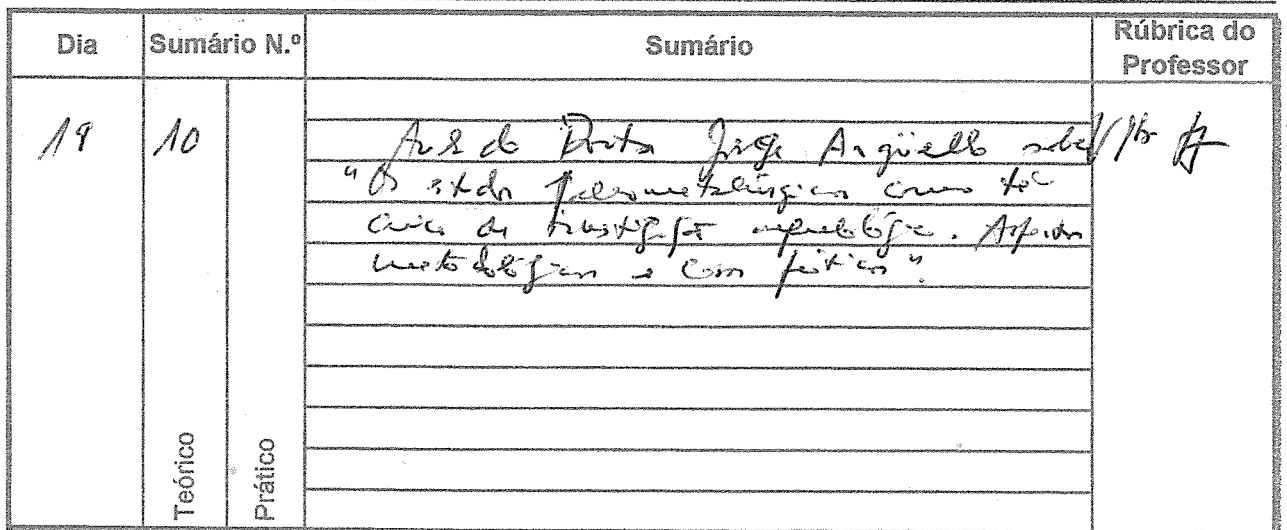 Dia Sumário N.º Sumário Rúbrica do Professor
19 10 Aula do Doutor Jorge Argüello sobre
"Os estudos paleometalúrgicos como téc
nica de investigação arqueológica. Aspectos
metodológicos e
Teórico
Prático